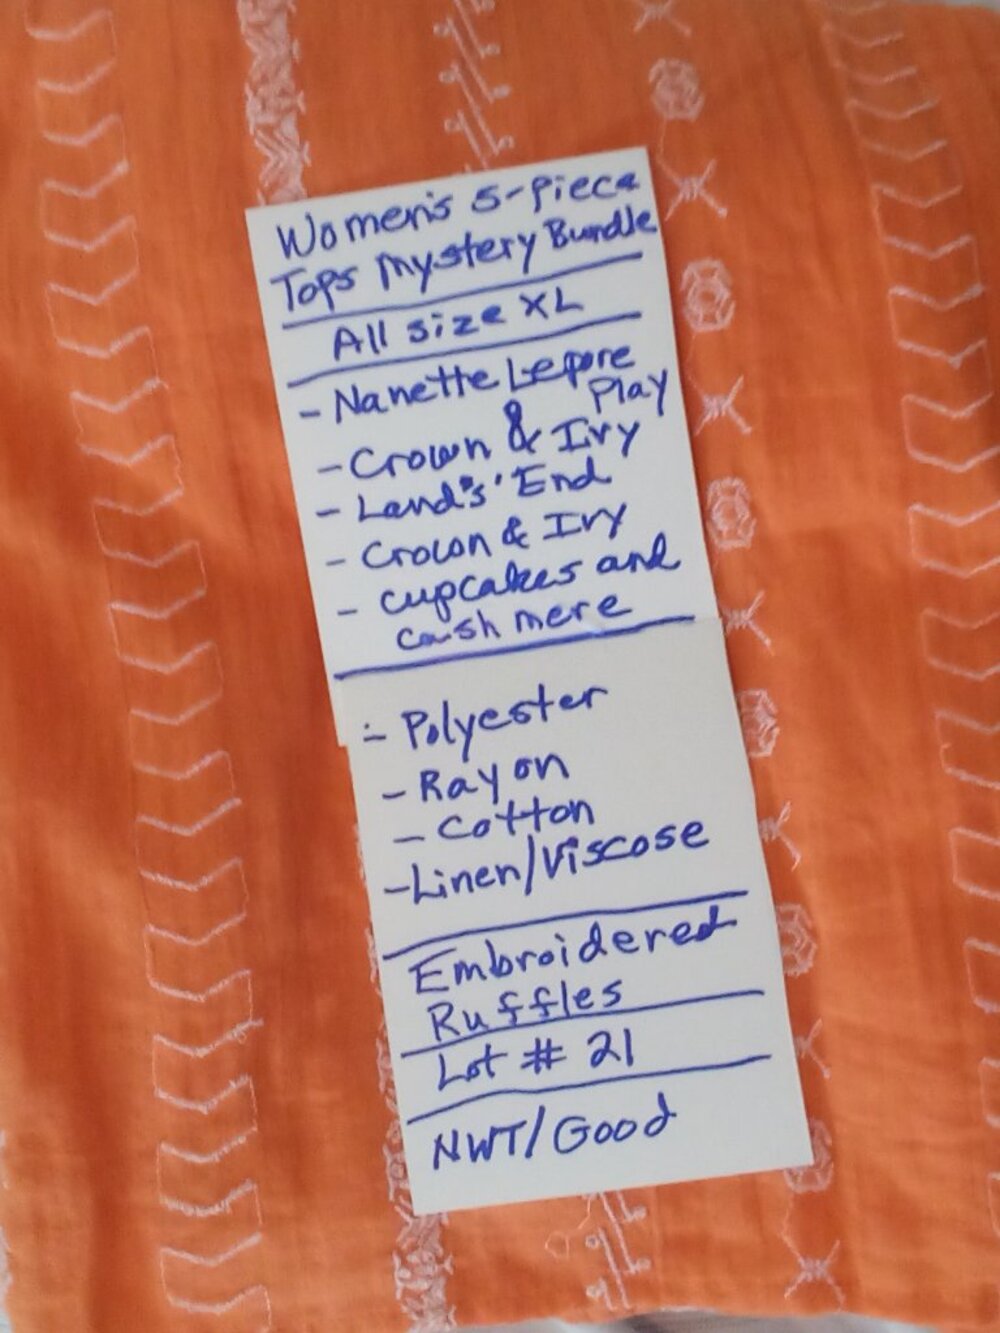 Women's 5-Piece
Tops Mystery Bundle
All size XL
- Nanette Lepore
Play
- Crown & Ivy
- Land's' End
- Crown & Ivy
- cupcakes and
cashmere
- Polyester
- Rayon
- Cotton
- Linen/Viscose
Embroidered
Ruffles
Lot # 21
NWT/Good